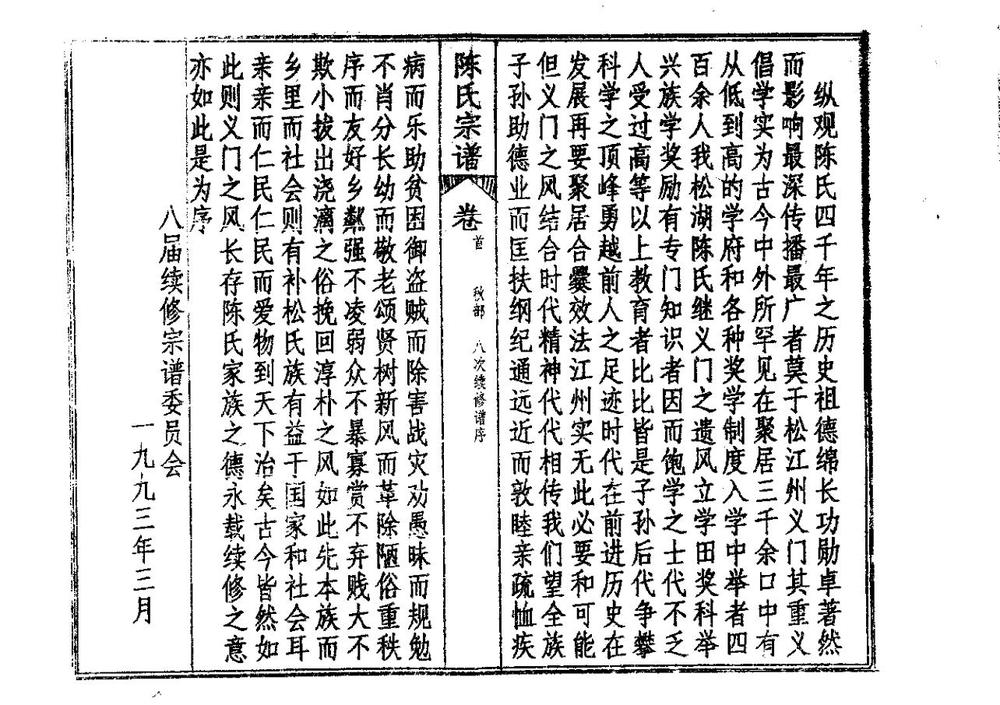 纵观陈氏四千年之历史祖德绵长功勋卓著然
而影响最深传播最广者莫于松江州义门其重义
倡学实为古今中外所罕见在聚居三千余口中有
从低到高的学府和各种奖学制度入学中举者四
百余人我松湖陈氏继义门之遗风立学田奖科举
兴族学奖励有专门知识者因而饱学之士代不乏
人受过高等以上教育者比比皆是子孙后代争攀
科学之顶峰勇越前人之足迹时代在前进历史在
发展再要聚居合爨效法江州实无此必要和可能
但义门之风结合时代精神代代相传我们望全族
子孙助德业而匡扶纲纪通远近而敦睦亲疏恤疾
陈氏宗谱
卷首 秋部 八次续修谱序
病而乐助贫困御盗贼而除害战灾劝愚昧而规勉
不肖分长幼而敬老颂贤树新风而革除陋俗重秩
序而友好乡邻强不凌弱众不暴寡赏不弃贱大不
欺小拔出浇漓之俗挽回淳朴之风如此先本族而
乡里而社会则有补松氏族有益于国家和社会耳
亲亲而仁民仁民而爱物到天下治矣古今皆然如
此则义门之风长存陈氏家族之德永载续修之意
亦如此是为序
八届续修宗谱委员会
一九九三年三月